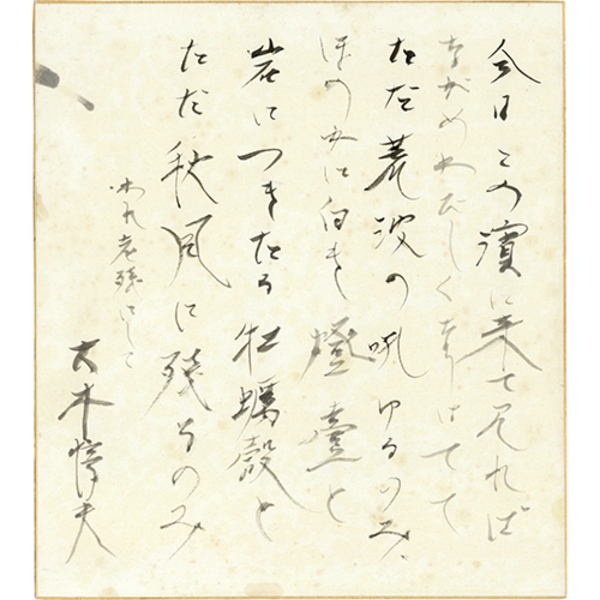 今日この濱に来て見れば
ながめわびしく幸はてて
ただ荒波の吼ゆるのみ、
ほのかに白き燈臺と
岩につきたる牡蠣殻と
ただ秋風に残るのみ
われ老残にして
大木惇夫